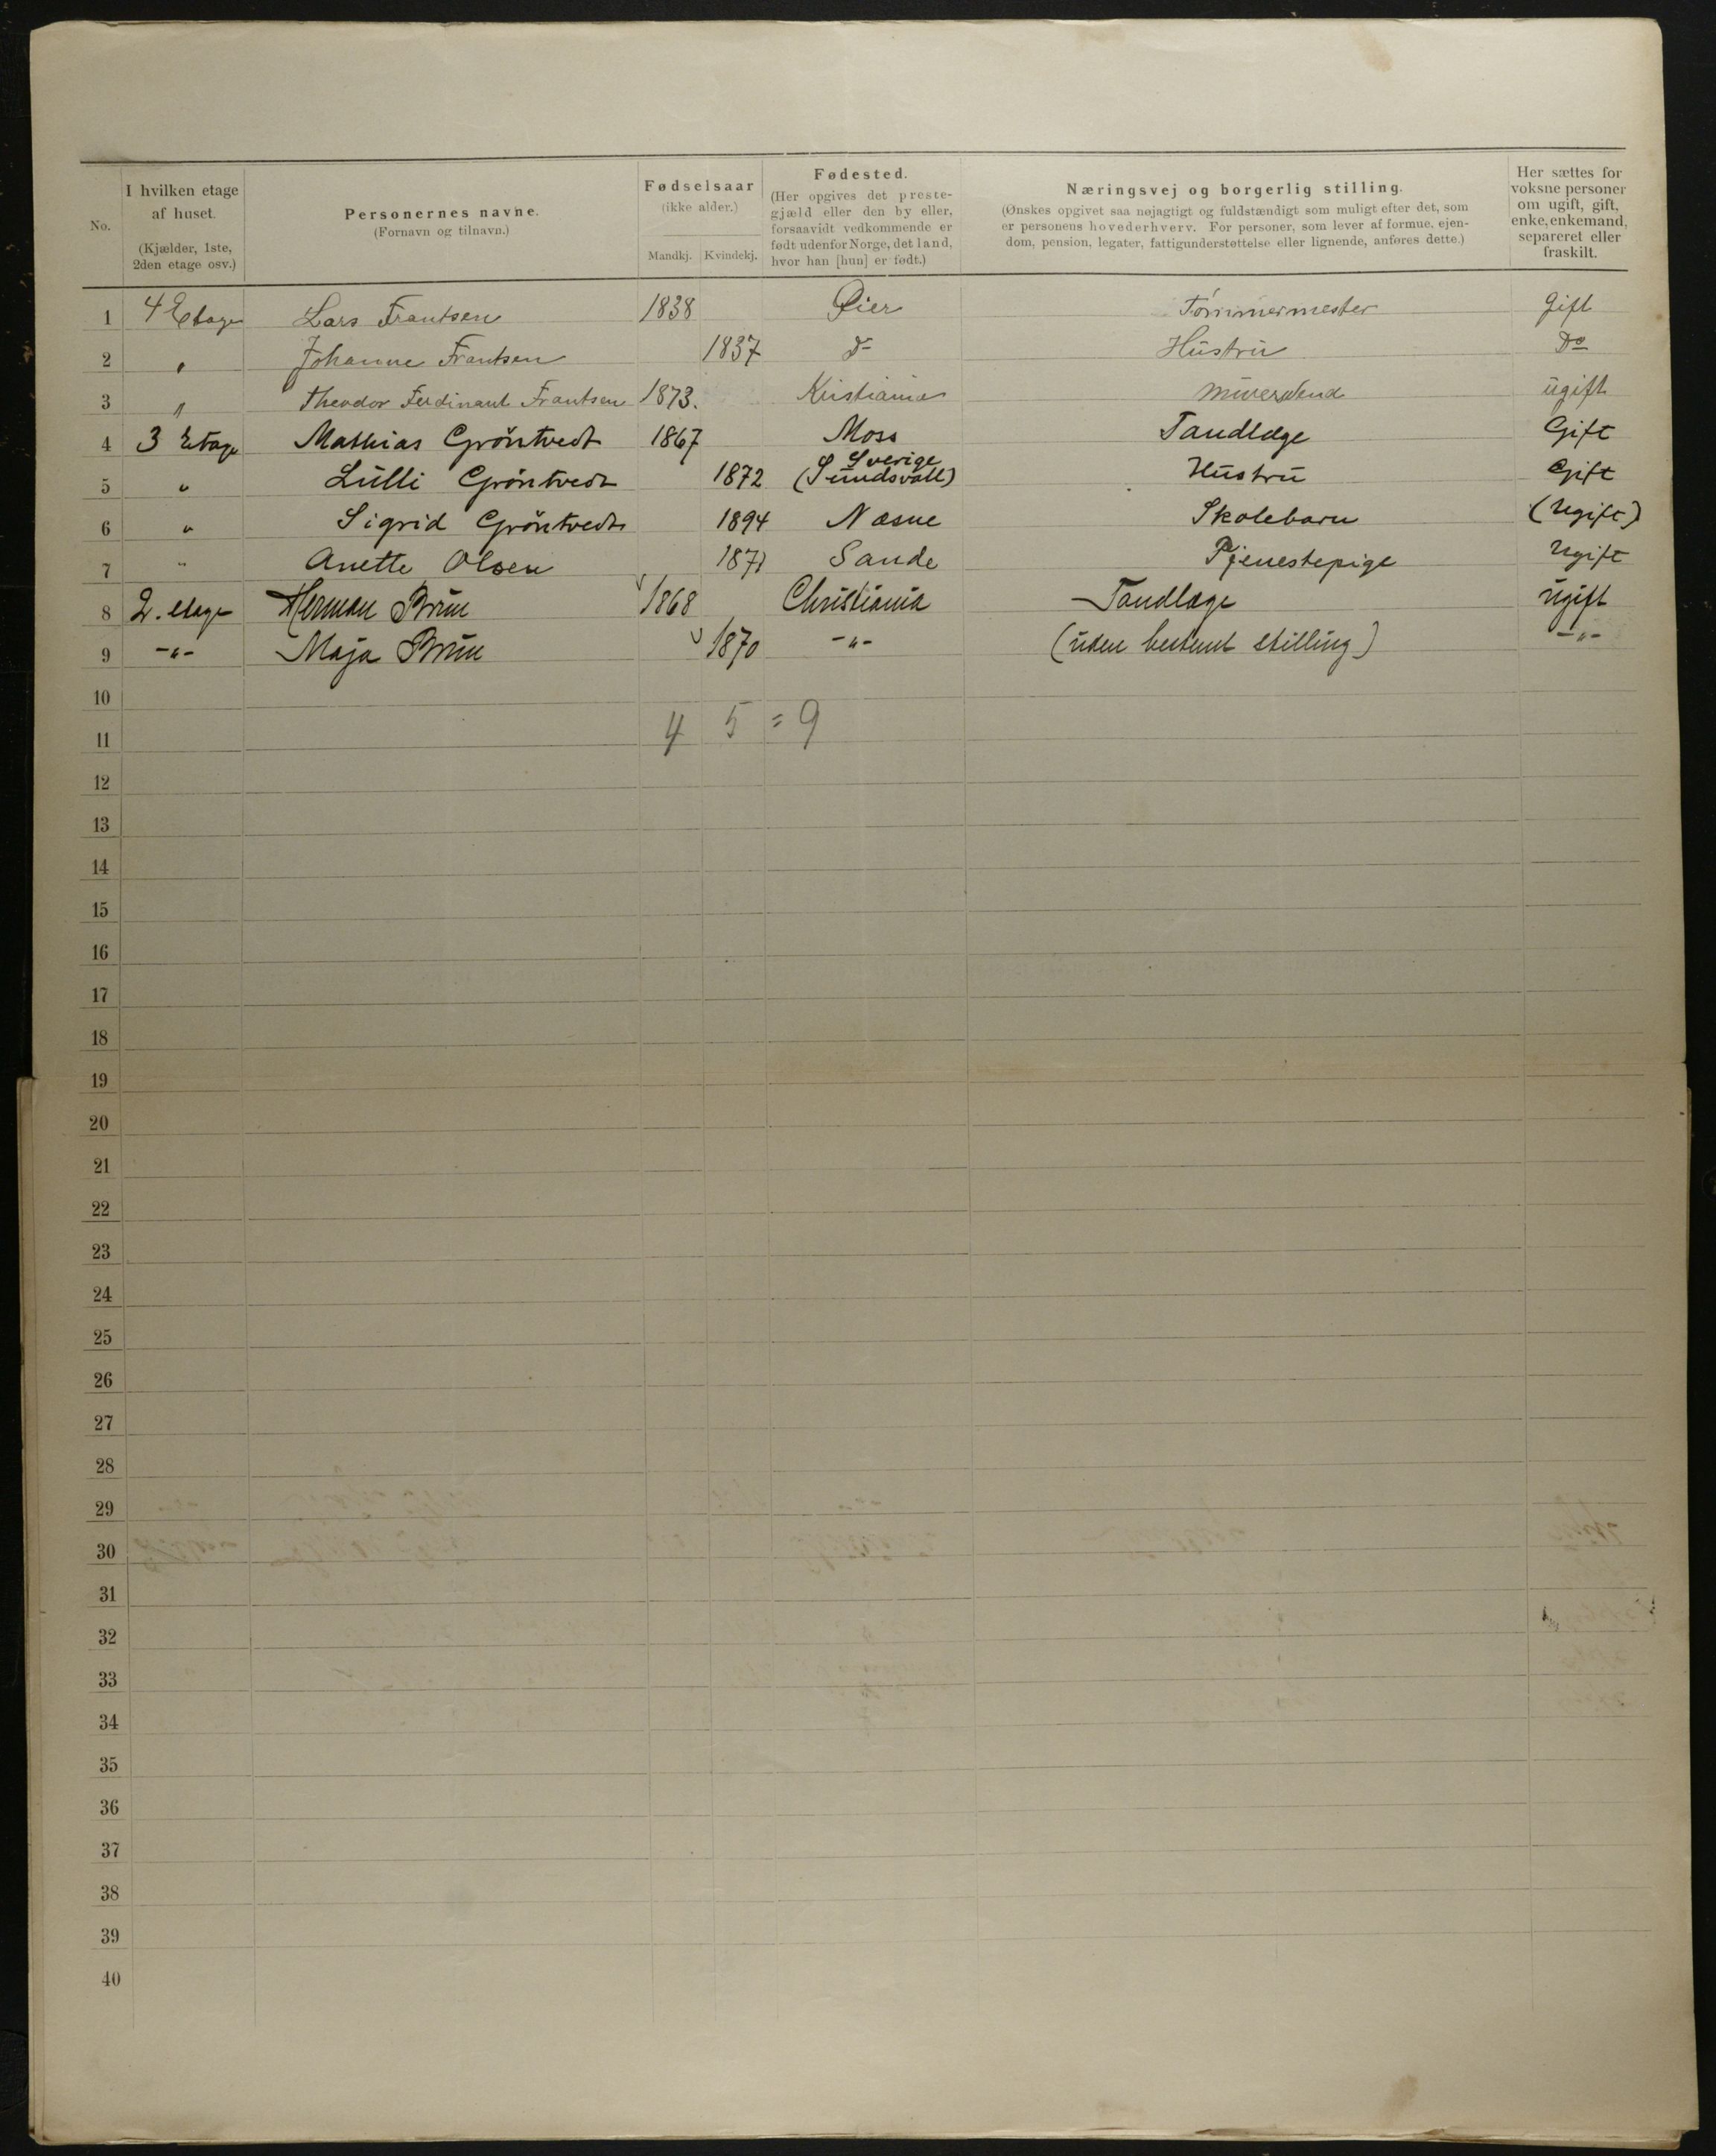 No.
I hvilken etage af huset. (Kjælder, 1ste, 2den etage osv.)
Personernes navne. (Fornavn og tilnavn.)
Fødselsaar (ikke alder.)
Mandkj. Kvindekj.
Fødested.
(Her opgives det preste-
gjæld eller den by eller,
forsaavidt vedkommende er
født udenfor Norge, det land,
hvor han [hun] er født.)
Næringsvej og borgerlig stilling.
(Ønskes opgivet saa nøjagtigt og fuldstændigt som muligt efter det, som
er personens hovederhverv. For personer, som lever af formue, ejen-
dom, pension, legater, fattigunderstøttelse eller lignende, anføres dette.)
Her sættes for
voksne personer
om ugift, gift,
enke, enkemand,
separeret eller
fraskilt.
1 4 Etage Lars Frantsen 1838 Øier Tømmermester Gift
2 " Johanne Frantsen 1837 Do Hustru Do
3 " Theodor Ferdinant Frantsen 1873. Kristiania Muersvend ugift
4 3 Etage Mathias Gröntvedt 1867 Moss Tandlæge Gift
5 " Lulli Gröntvedt 1872 Sverige (Sundsvall) Hustru Gift
6 " Sigrid Gröntvedt 1894 Næsne Skolebarn (Ugift)
7 " Anette Olsen 1871 Sande Tjenestepige Ugift
8 2. etage Herman Brun 1868 Christiania Tandlæge Ugift
9 -"- Maja Brun 1870 -"- (uden bestemt stilling) -"-
10
4 5 = 9
11
12
13
14
15
16
17
18
19
20
21
22
23
24
25
26
27
28
29
30
31
32
33
34
35
36
37
38
39
40